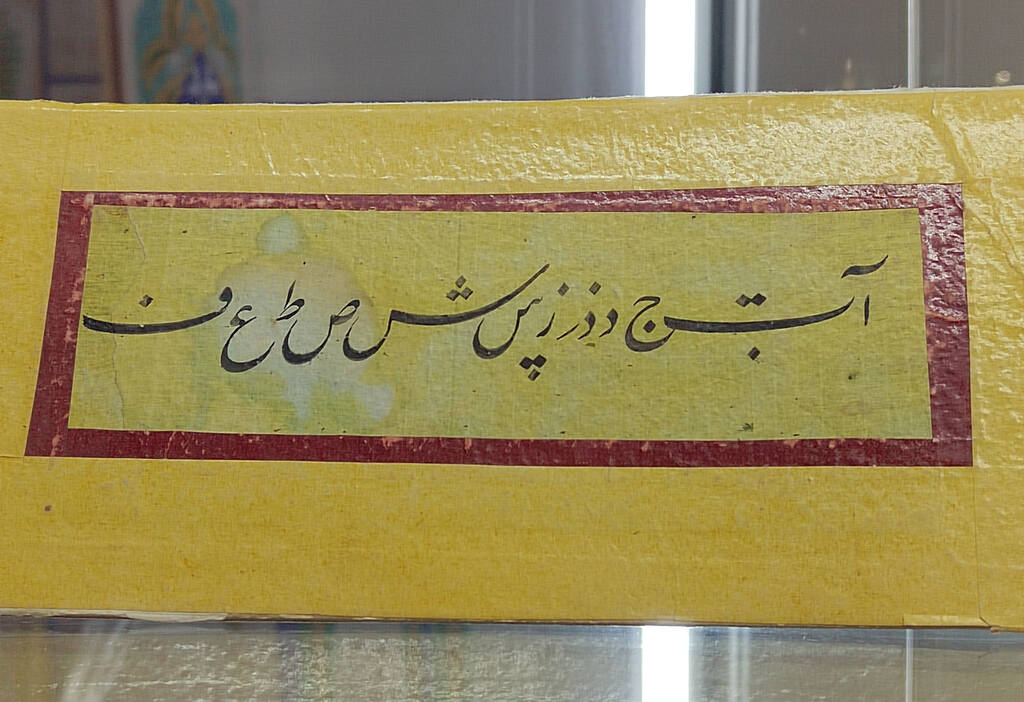 آ ب ت ج د ذ ر ز س ش ص ط ع ف